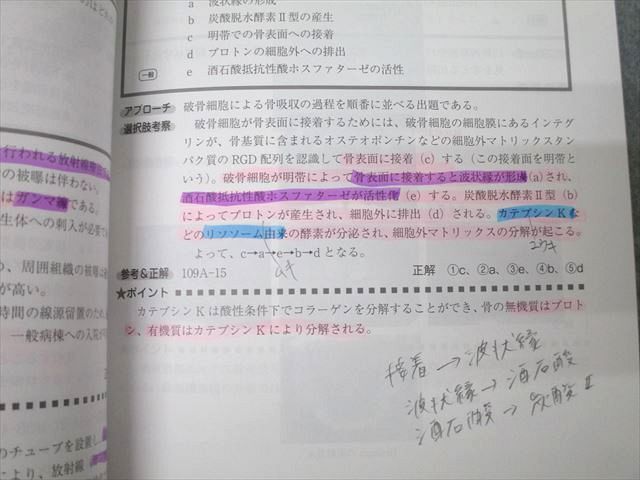 a 波状縁の形成
b 炭酸脱水酵素Ⅱ型の産生
c 明帯での骨表面への接着
d プロトンの細胞外への排出
一般 e 酒石酸抵抗性酸ホスファターゼの活性
アプローチ 破骨細胞による骨吸収の過程を順番に並べる出題である。
選択肢考察 破骨細胞が骨表面に接着するためには、破骨細胞の細胞膜にあるインテグ
リンが、骨基質に含まれるオステオポンチンなどの細胞外マトリックスタン
パク質の RGD 配列を認識して骨表面に接着（c）する（この接着面を明帯と
いう）。破骨細胞が明帯によって骨表面に接着すると波状縁が形成（a）され、
酒石酸抵抗性酸ホスファターゼが活性化（e）する。炭酸脱水酵素Ⅱ型（b）
によってプロトンが産生され、細胞外に排出（d）される。カテプシン K な
どのリソソーム由来の酵素が分泌され、細胞外マトリックスの分解が起こる。
よって、c→a→e→b→d となる。
ムキ
ユウキ
参考＆正解 109A-15 正解 ①c、②a、③e、④b、⑤d
★ポイント
カテプシン K は酸性条件下でコラーゲンを分解することができ、骨の無機質はプロト
ン、有機質はカテプシン K により分解される。
接着→波状縁
波状縁→酒石酸
酒石酸→炭酸Ⅱ
行われる放射線
の被曝は伴わない。
はガンマ線である。
生体への刺入が必要
め、周囲組織の被曝
が高い。
時間の線源留置のため、
一般病棟への入院が
のチューブを設置し
により、放射線